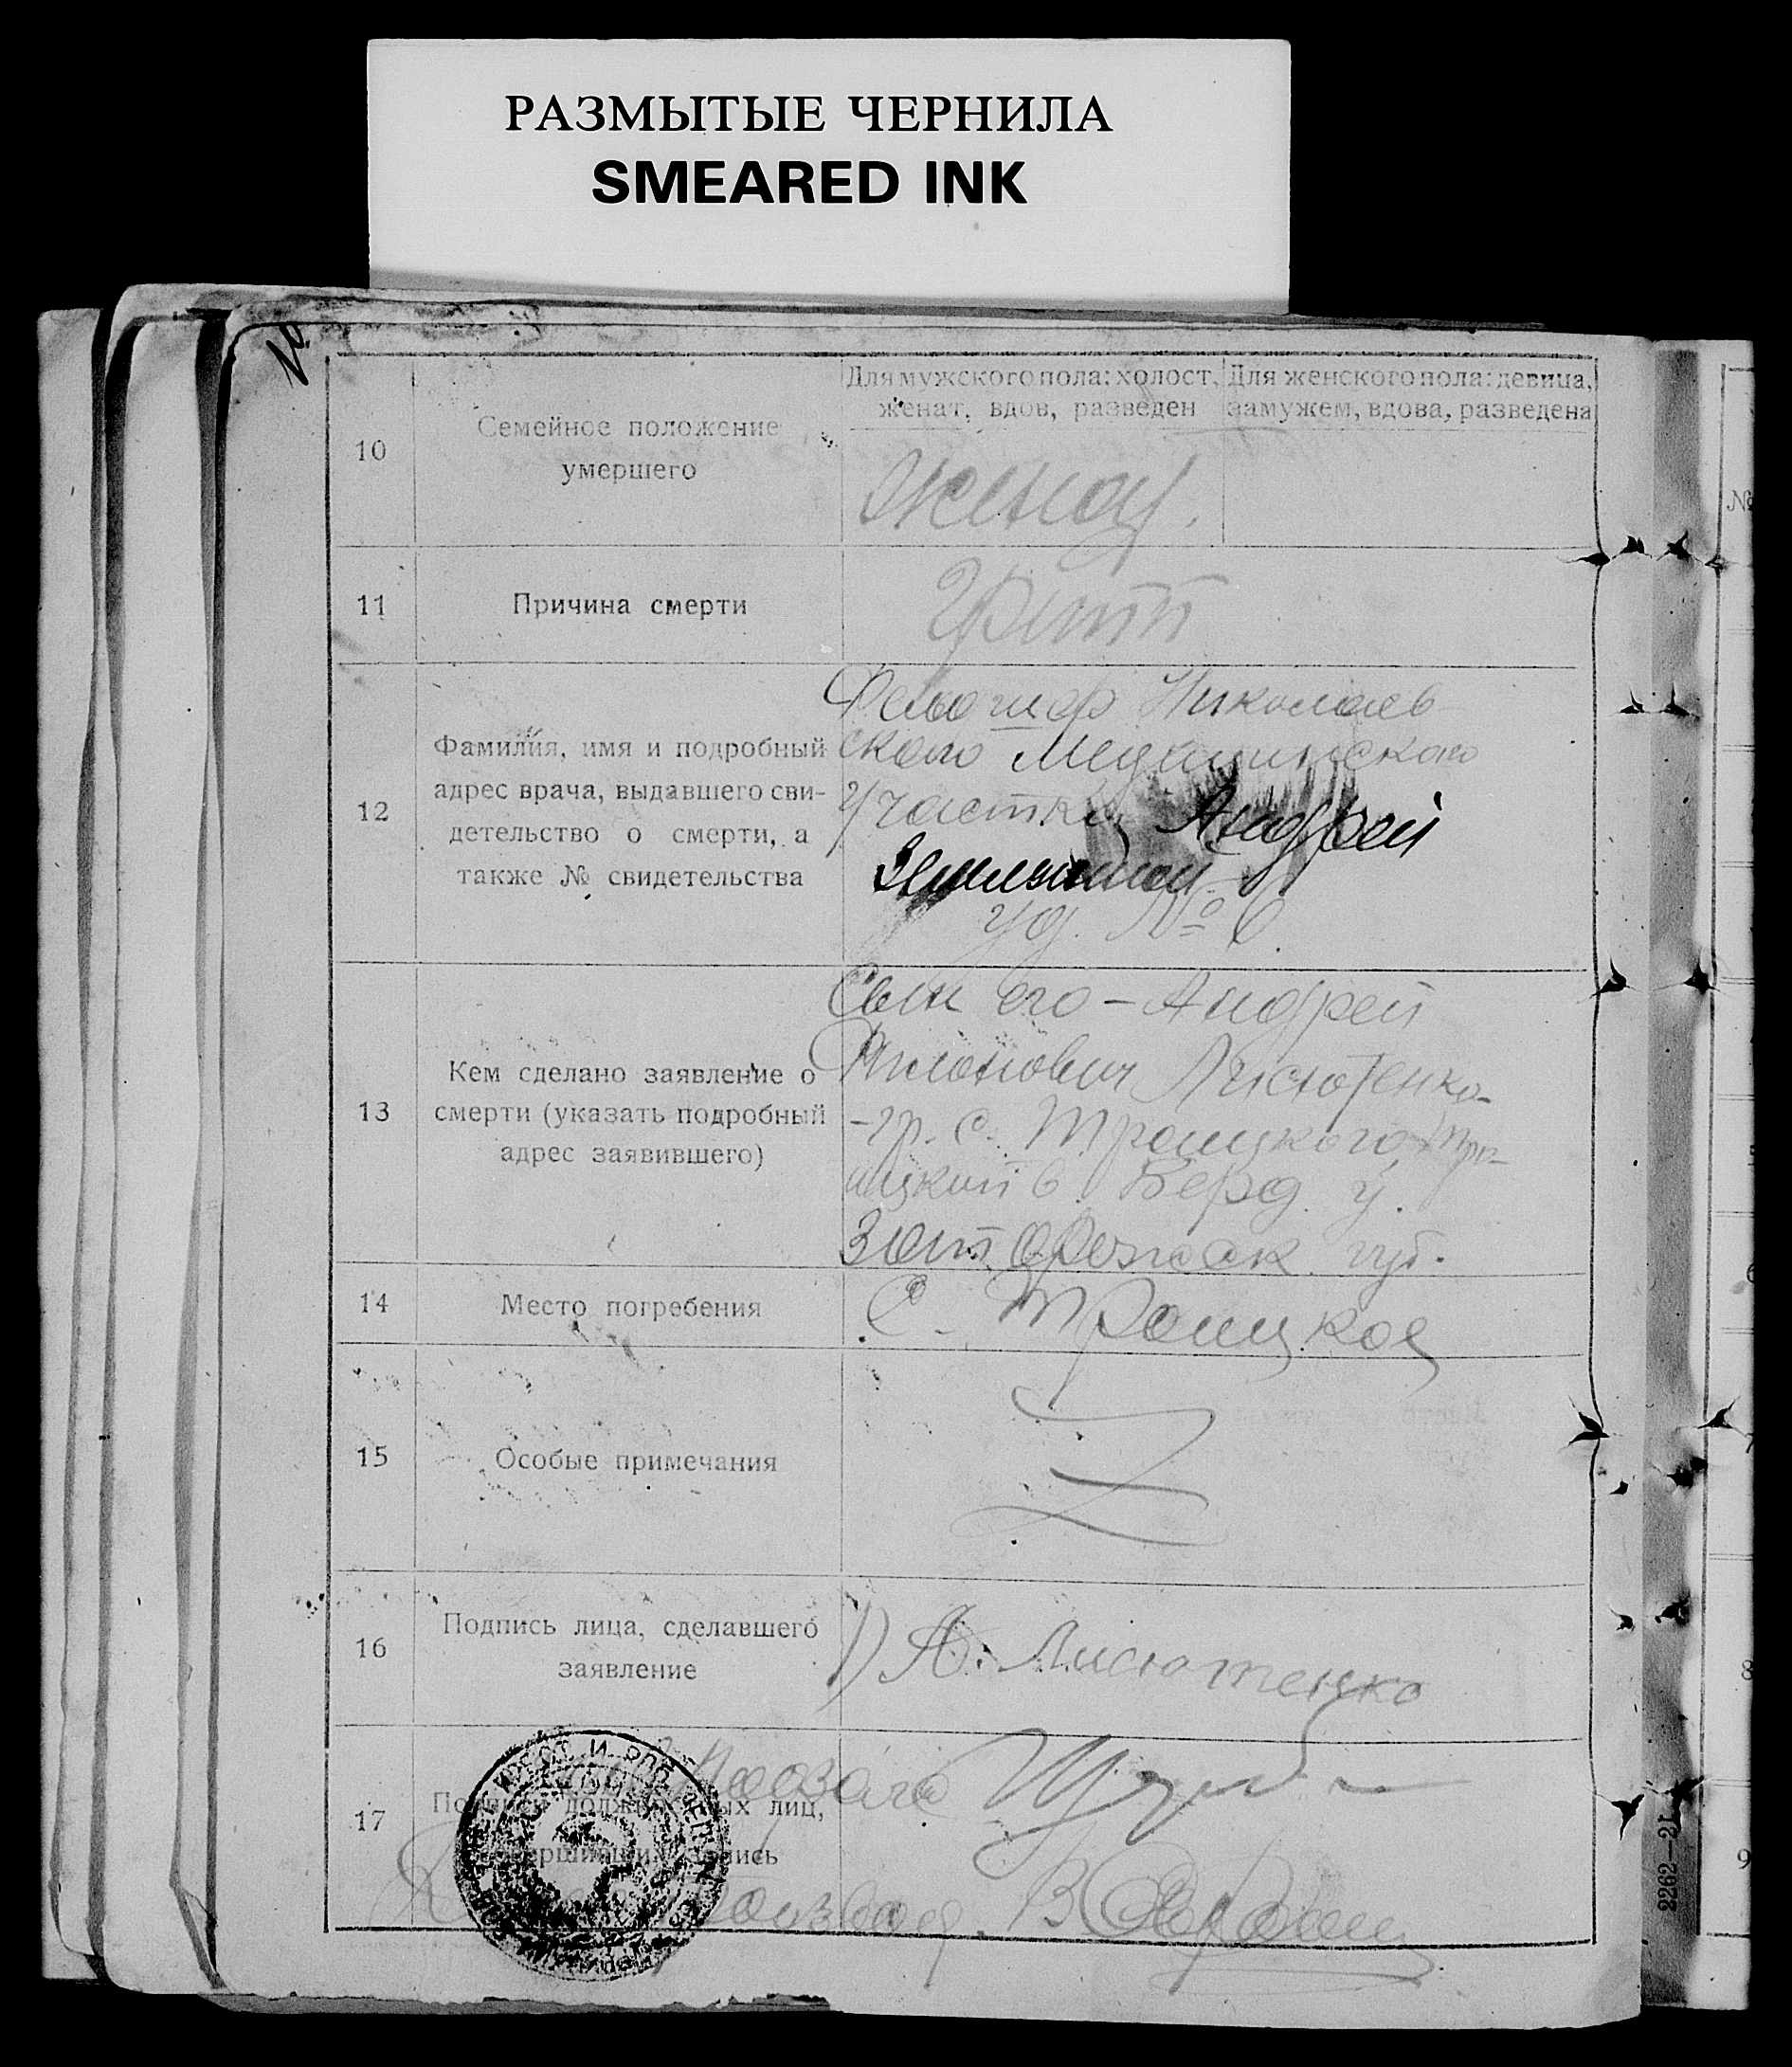 РАЗМЫТЫЕ ЧЕРНИЛА
SMEARED INK
10
Семейное положение
умершего
Для мужского пола: холост,
женат, вдов, разведен
Для женского пола: девица,
замужем, вдова, разведена
женат.
11
Причина смерти
Грипп
12
Фамилия, имя и подробный
адрес врача, выдавшего сви-
детельство о смерти, а
также № свидетельства
Фельдшер Николаев
ского Медицинского
Участка Андрей
уд. № 6.
13
Кем сделано заявление о
смерти (указать подробный
адрес заявившего)
Сын его - Андрей
Филонович Лисютенко
-гр. с. Троицкого Тро-
ицкой в. Берд. у.
Запорожск. губ.
14
Место погребения
С. Троицкое
15
Особые примечания
16
Подпись лица, сделавшего
заявление
1) А. Лисютенко
17
Подписи должностных лиц,
совершивших запись
2262—21
№
8
9